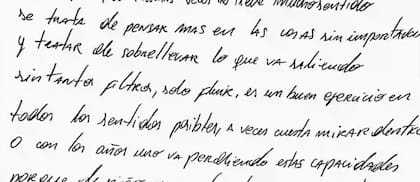 veces no tiene mucho sentido
se trata de pensar mas en las cosas sin importancia
y tratar de sobrellevar lo que va saliendo
sin tantos filtros, solo fluir, es un buen ejercicio en
todos los sentidos posibles, a veces cuesta mirar dentro
o con los años uno va perdiendo estas capacidades
porque de niños